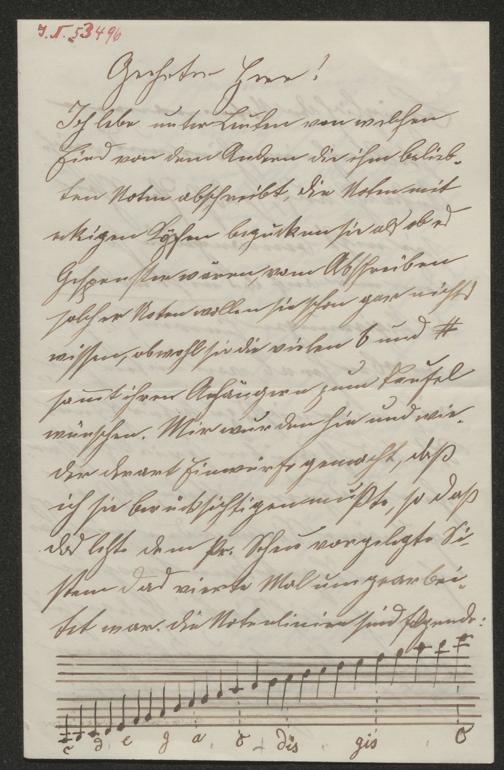 J.N. 53496
Geehrter Herr!
Ich lebe unter Leuten von welchen
Eines von dem Andern die ihm belieb-
ten Noten abschreibt, die Noten mit
eckigen Köpfen begucken sie als ob es
Gespenster wären, vom Abschreiben
solcher Noten wollen sie schon gar nichts
wissen, obwohl sie die vielen b und #
sammt ihren Anhängern zum Teufel
wünschen. Mir wurden hie und wie-
der derart Einwürfe gemacht, daß
ich sie berücksichtigen mußte, so daß
das letzte dem Hr. Scheu vorgelegte Si-
stem das vierte Mal umgearbei-
tet war. Die Notenlinien sind folgende:
c d e g a dis gis